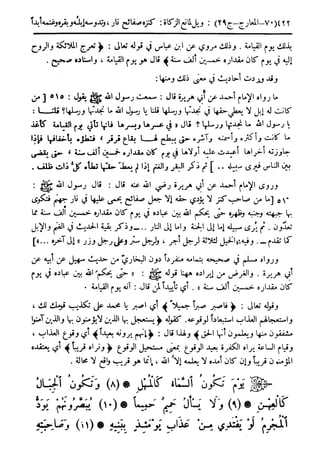 (٤٢٢) (٧٠-المعارج-ج٢٩) : ويل لمانع الزكاة: كنزه صفائح نار، وتدوسه إبله وبقره وغنمه أبداً
بذلك يوم القيامة. وذلك مروي عن ابن عباس في قوله تعالى: ﴿تعرج الملائكة والروح
إليه في يوم كان مقداره خمسين ألف سنة﴾ قال هو يوم القيامة، وإسناده صحيح.
وقد وردت أحاديث في معنى ذلك ومنها:
ما رواه الإمام أحمد عن أبي هريرة قال: سمعت رسول الله ﷺ يقول: ٥١٥ [من
كانت له إبل لا يعطي حقها في نجدتها ورسلها قلنا يا رسول الله ما نجدتها ورسلها؟ قال:
في عسرها ويسرها فإنها تأتي يوم القيامة كأغذ
ما كانت وأكثره وأسمنه وآشره حتى يبطح لها بقاع قرقر، فتطؤه بأخفافها فإذا
جاوزته أخراها أعيدت عليه أولاها في يوم كان مقداره خمسين ألف سنة، حتى يقضى
بين الناس فيرى سبيله ..] ثم ذكر البقر والغنم
وروى الإمام أحمد عن أبي هريرة رضي الله عنه قال: قال رسول الله ﷺ :
٥١٦ [ما من صاحب كنز لا يؤدي حقه إلا جعل صفائح يحمى عليها في نار جهنم فتكوى
بها جبهته وجنبه وظهره حتى يحكم الله بين عباده في يوم كان مقداره خمسين ألف سنة مما
تعدون. ثم يرى سبيله إما إلى الجنة وإما إلى النار .. وذكر بقية الحديث في الغنم والإبل
كما تقدم .. وفيه: الخيل لثلاثة لرجل أجر، ولرجل ستر وعلى رجل وزر» إلى آخره ..]
ورواه مسلم في صحيحه بتمامه منفرداً دون البخاري من حديث سهيل عن أبيه عن
أبي هريرة. والغرض من إيراده ههنا قوله ﷺ : «حتى يحكم الله بين عباده في يوم
كان مقداره خمسين ألف سنة». أي تأييداً لمن قال: أنه يوم القيامة.
وقوله تعالى: ﴿فاصبر صبراً جميلاً﴾ أي اصبر يا محمد على تكذيب قومك لك،
واستعجالهم العذاب استبعاداً لوقوعه. كقوله ﴿يستعجل بها الذين لا يؤمنون بها والذين آمنوا
مشفقون منها ويعلمون أنها الحق﴾ ولهذا قال: ﴿إنهم يرونه بعيداً﴾ أي وقوع العذاب،
وقيام الساعة يراه الكفرة بعيد الوقوع بمعنى مستحيل الوقوع ﴿ونراه قريباً﴾ أي يعتقده
المؤمنون قريباً وإن كان أمده لا يعلمه إلا الله، إنما هو قريب واقع لا محالة.
يَوْمَ تَكُونُ السَّمَاءُ كَالْمُهْلِ * (٨) وَتَكُونُ الْجِبَالُ
كَالْعِهْنِ * (٩) وَلَا يَسْأَلُ حَمِيمٌ حَمِيماً * (١٠) يُبَصَّرُونَهُمْ يَوَدُّ
الْمُجْرِمُ لَوْ يَفْتَدِي مِنْ عَذَابِ يَوْمِئِذٍ بِبَنِيهِ * (١١) وَصَاحِبَتِهِ